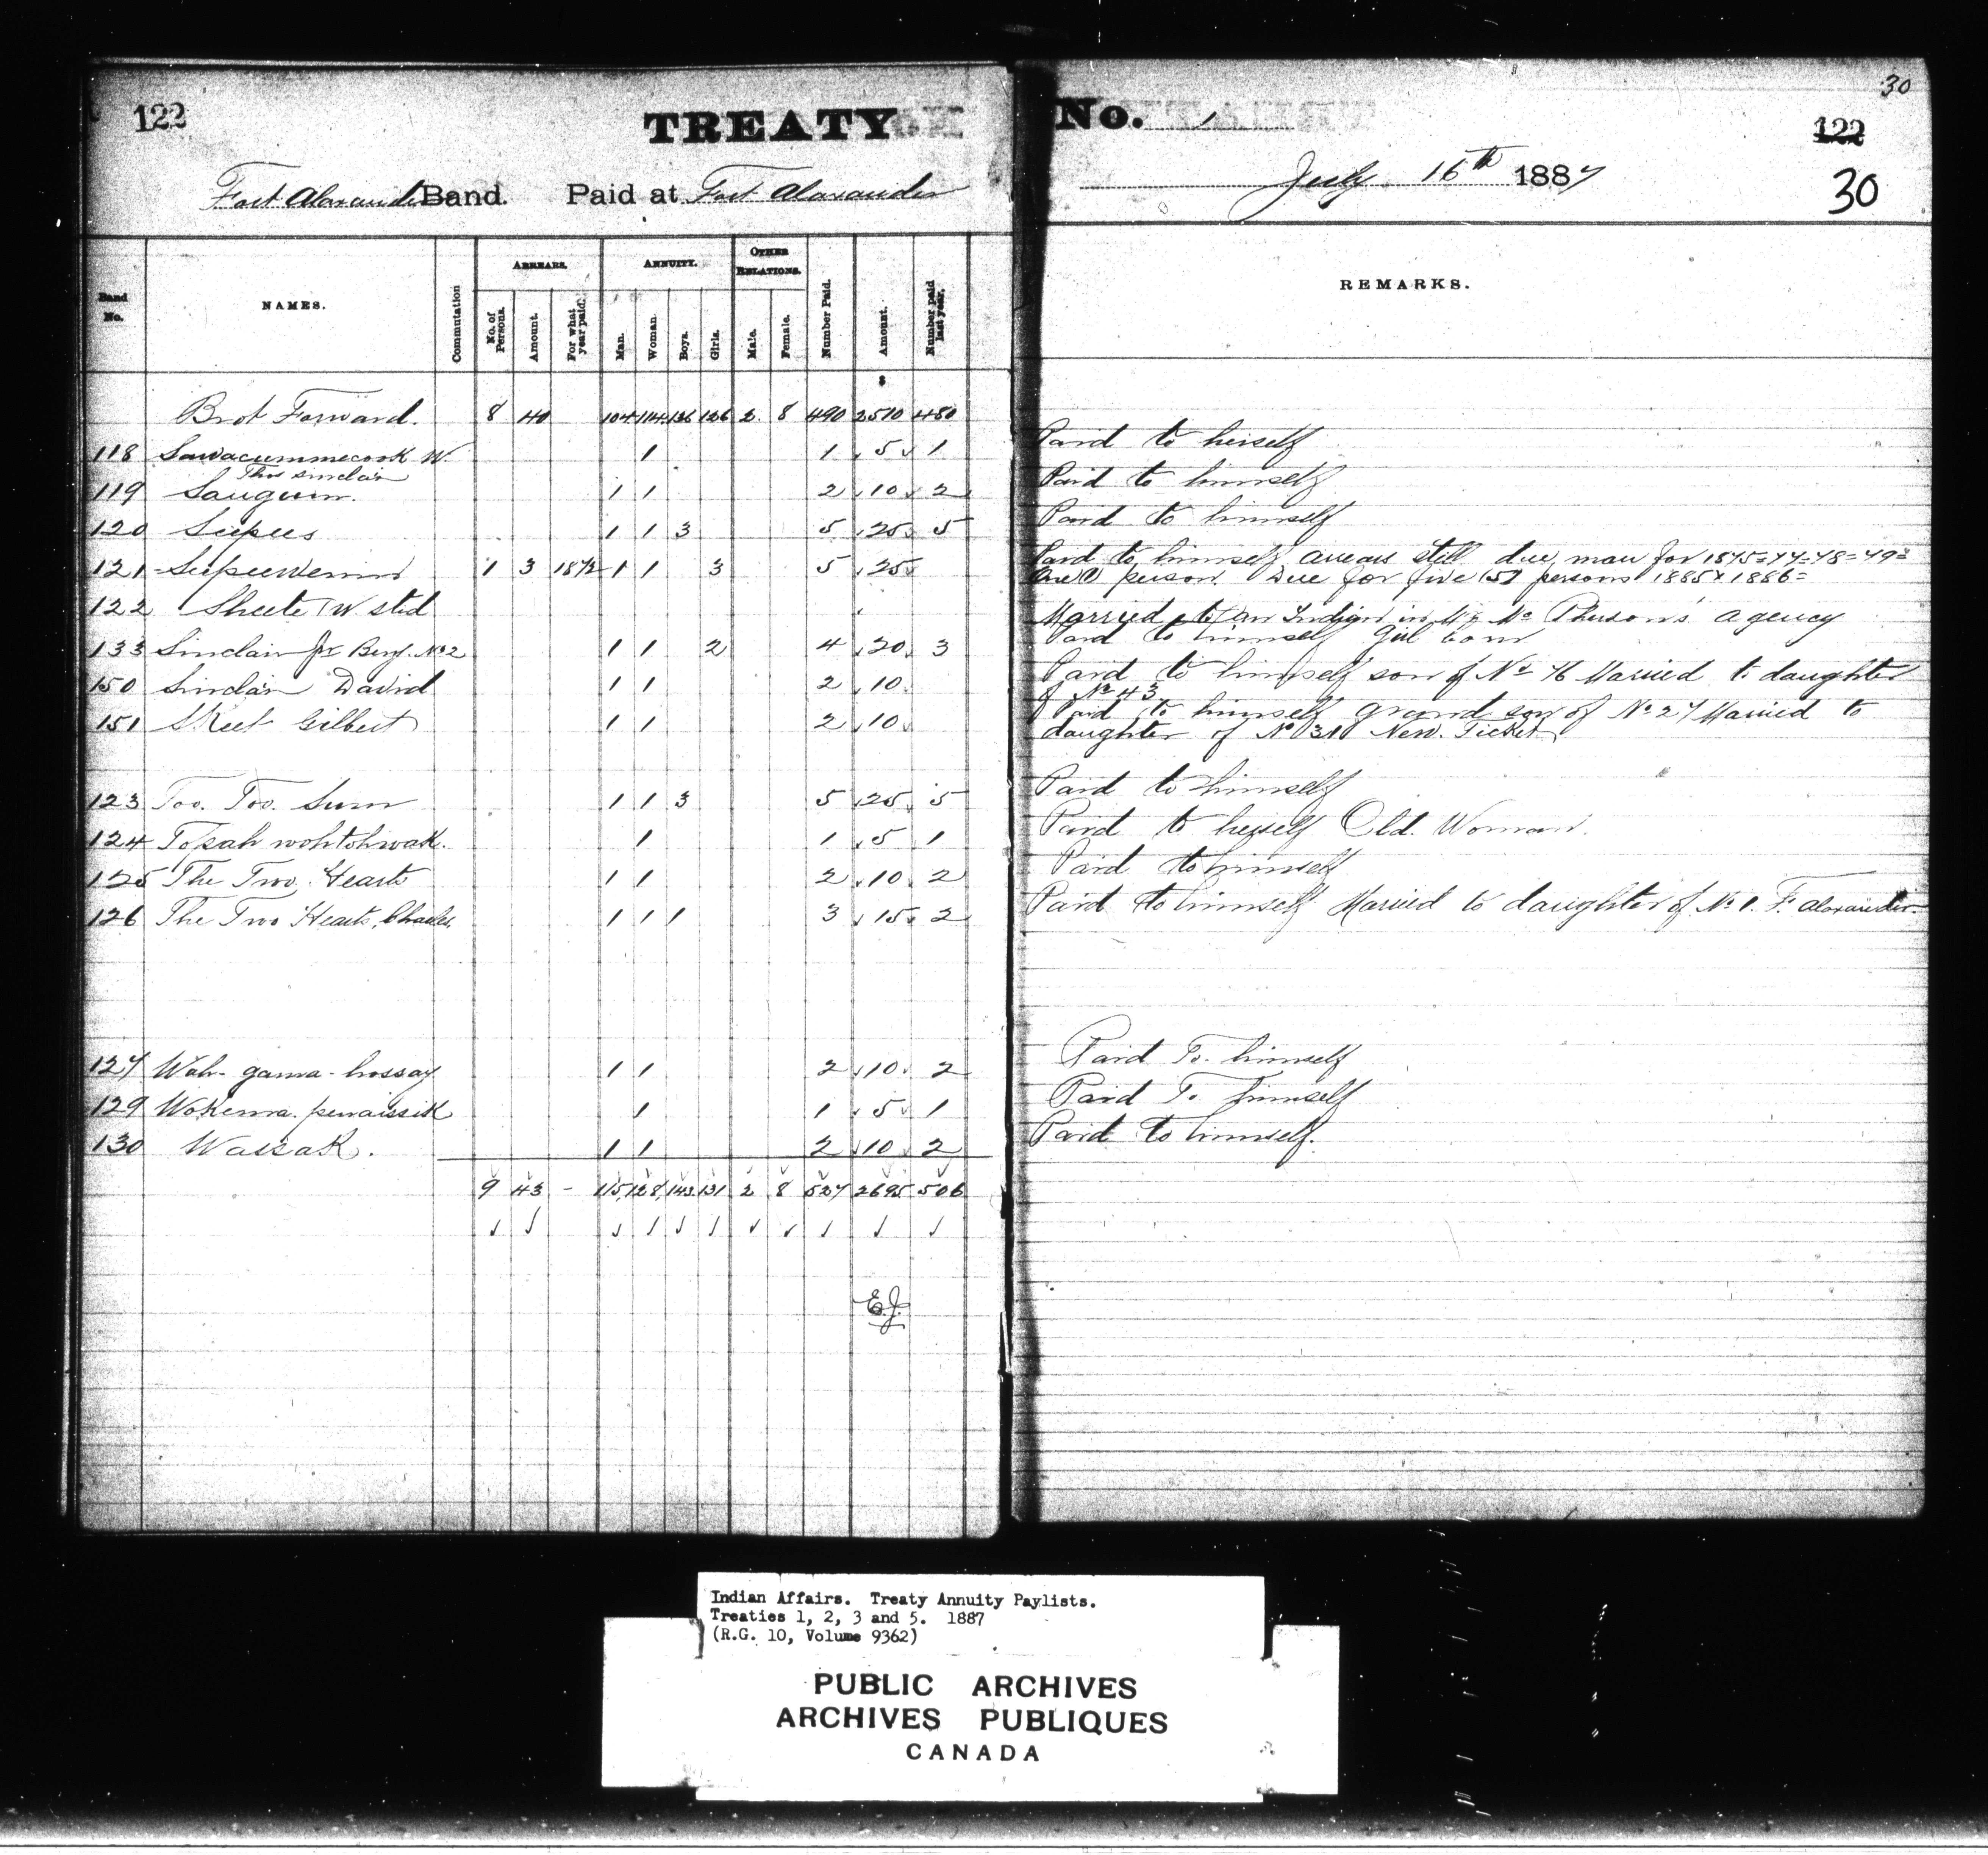 30
122 TREATY No. 1 122
Fort Alexander Band. Paid at Fort Alexander July 16th 1887 30
Band No. NAMES. Commutation ARREARS. No. of Persons. Amount. For what year paid. ANNUITY. Man. Woman. Boys. Girls. OTHER RELATIONS. Male. Female. Number Paid. Amount. Number paid last year. REMARKS.
$
Brot Forward. 8 40 104 114 136 126 2 8 490 2510 480
118 Sawacummecook W. 1 1 5 1 Paid to herself
Thos Sinclair
119 Sauguin. 1 1 2 10 2 Paid to himself
120 Seepees 1 1 3 5 25 5 Paid to himself
121 1 3 187 1 1 3 5 25 Paid to himself arrears still due man for 1875=77=78=79=
One (1) person. Due for five (5) persons 1885 & 1886=
122 Sheete W sted Married to an Indian in Mr Mc Pherson's agency
133 Sinclair Jr Benj. No 2 1 1 2 4 20 3 Paid to himself Girl born
150 Sinclair David 1 1 2 10 Paid to himself son of No 76 Married to daughter
of No 43
151 Skeet Gilbert 1 1 2 10 Paid to himself grand son of No 27 Married to
daughter of No 31 New Ticket
123 Too. Too. Sum 1 1 3 5 25 5 Paid to himself
124 Tosah wohtohwak. 1 1 5 1 Paid to herself Old. Woman.
125 The Two Hearts 1 1 2 10 2 Paid to himself
126 The Two Hearts, Charles, 1 1 1 3 15 2 Paid to himself Married to daughter of No 1. F. Alexander
127 Wah-gama-hossay 1 1 2 10 2 Paid To. himself
129 Wokema. penaissik 1 1 5 1 Paid To himself
130 Waisak. 1 1 2 10 2 Paid to himself.
9 43 - 115 128 143 131 2 8 527 2695 506
E.J.
Indian Affairs. Treaty Annuity Paylists.
Treaties 1, 2, 3 and 5. 1887
(R.G. 10, Volume 9362)
PUBLIC ARCHIVES
ARCHIVES PUBLIQUES
CANADA